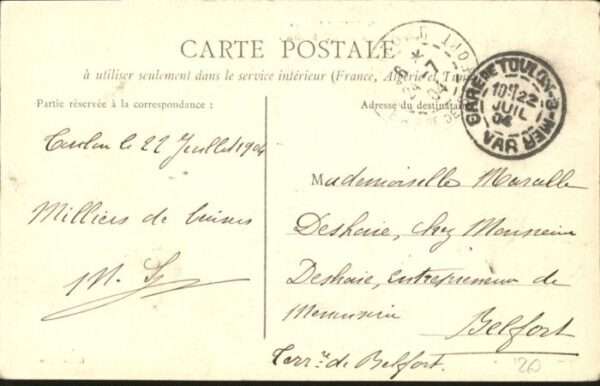 CARTE POSTALE
à utiliser seulement dans le service intérieur (France, Algérie et Tun
Partie réservée à la correspondance :
Adresse du destinataire
GARE DE TOULON-S-MER
10H 22
JUIL
04
VAR
Toulon le 22 Juillet 1904
Milliers de bises
Mademoiselle Marcelle
Deshaie, chez Monsieur
Deshaie, entrepreneur de
Menuiserie
Belfort
Terr.re de Belfort.
20